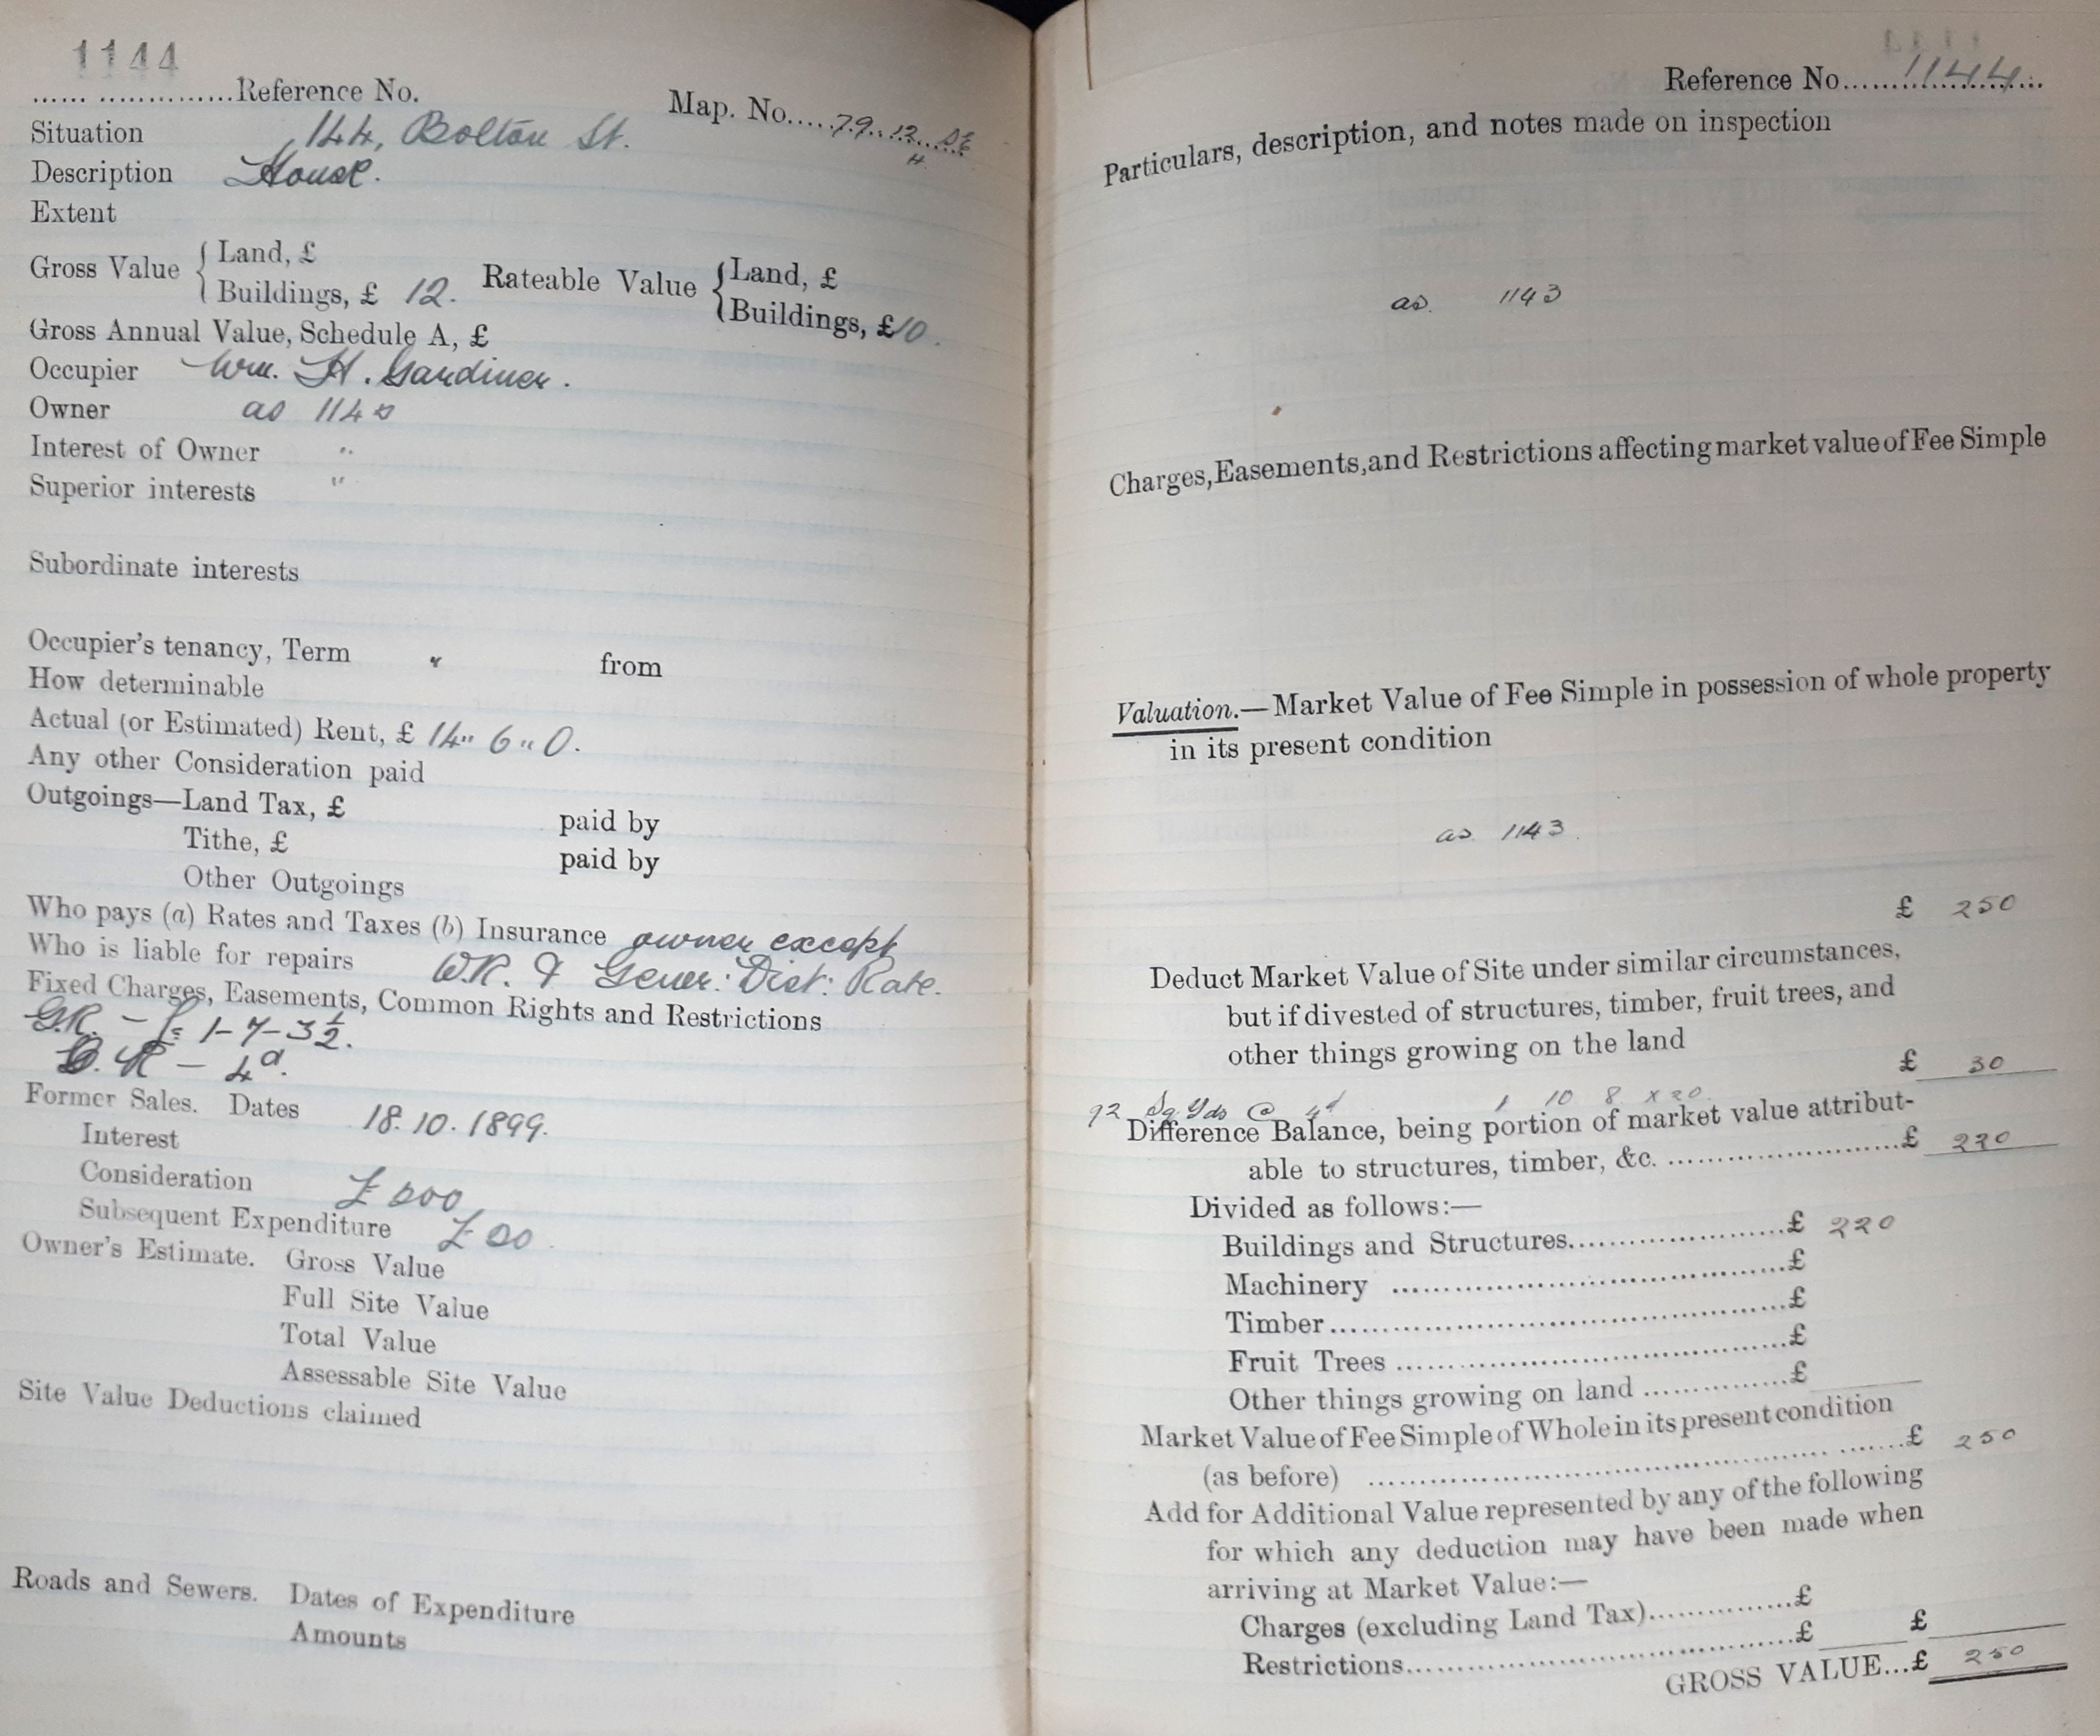 1144
...... ...............Reference No.
Map. No.....79..12...SE
4
Situation 144, Bolton St.
Description House.
Extent
Gross Value { Land, £
Buildings, £ 12. Rateable Value { Land, £
Buildings, £10.
Gross Annual Value, Schedule A, £
Occupier Wm. H. Gardiner.
Owner as 114
Interest of Owner "
Superior interests "
Subordinate interests
Occupier's tenancy, Term " from
How determinable
Actual (or Estimated) Rent, £ 14" 6 " 0.
Any other Consideration paid
Outgoings—Land Tax, £ paid by
Tithe, £ paid by
Other Outgoings
Who pays (a) Rates and Taxes (b) Insurance owner except
Who is liable for repairs W.R. & Gener: Dist: Rate.
Fixed Charges, Easements, Common Rights and Restrictions
G.R. - £: 1-7-3½.
C.R - 4d.
Former Sales. Dates 18.10.1899.
Interest
Consideration £200
Subsequent Expenditure £20
Owner's Estimate. Gross Value
Full Site Value
Total Value
Assessable Site Value
Site Value Deductions claimed
Roads and Sewers. Dates of Expenditure
Amounts
Reference No......1144...
Particulars, description, and notes made on inspection
as 1143
Charges, Easements, and Restrictions affecting market value of Fee Simple
Valuation.—Market Value of Fee Simple in possession of whole property
in its present condition
as 1143.
£ 250
Deduct Market Value of Site under similar circumstances,
but if divested of structures, timber, fruit trees, and
other things growing on the land
£ 30
92 Sq Yds @ 4d 1 10 8 x 20
Difference Balance, being portion of market value attribut-
able to structures, timber, &c. ..........................£ 220
Divided as follows:—
Buildings and Structures........................£ 220
Machinery ..........................................£
Timber................................................£
Fruit Trees .........................................£
Other things growing on land ...............£
Market Value of Fee Simple of Whole in its present condition
(as before) ................................................ .......£ 250
Add for Additional Value represented by any of the following
for which any deduction may have been made when
arriving at Market Value:—
Charges (excluding Land Tax)...............£
Restrictions.........................................£ £
GROSS VALUE...£ 250